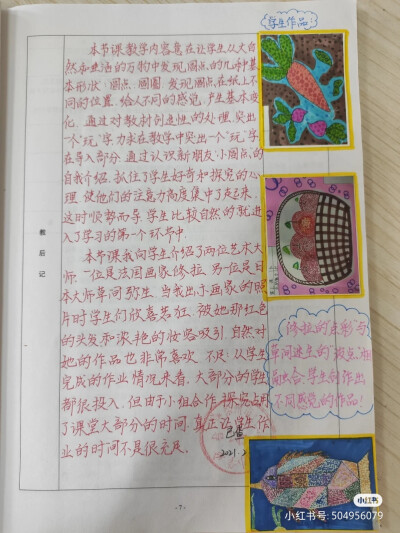 学生作品:
本节课教学内容意在让学生从大自
然和生活的万物中发现圆点的几种基
本形状:圆点、圆圈,发现圆点在纸上不
同的位置,给人不同的感觉,产生基本变
化。通过对教材创造性的处理,突出
一个"玩"字,力求在教学中突出一个"玩"字
在导入部分,通过认识新朋友"小圆点"的
自我介绍,抓住了学生好奇和探究的心
理,使他们的注意力高度集中了起来,
这时顺势而导,学生比较自然的就进
入了学习的第一个环节中。
本节课我向学生介绍了两位艺术大
师,一位是法国画家修拉,另一位是日
本大师草间弥生,当我出示画家的照
片时学生们欣喜若狂,被她那红色
的头发和浓艳的妆容吸引,自然对
她的作品也非常喜欢。不足:从学生
完成的作业情况来看,大部分的学生
都很投入,但由于小组合作探究占用
了课堂大部分的时间,真正让学生作
业的时间不是很充足。
教后记
修拉的点彩与
草间弥生的"波点"相
融合,学生创作出
不同感觉的作品!
已查
2021.
-7-
小红书
小红书号: 504956079